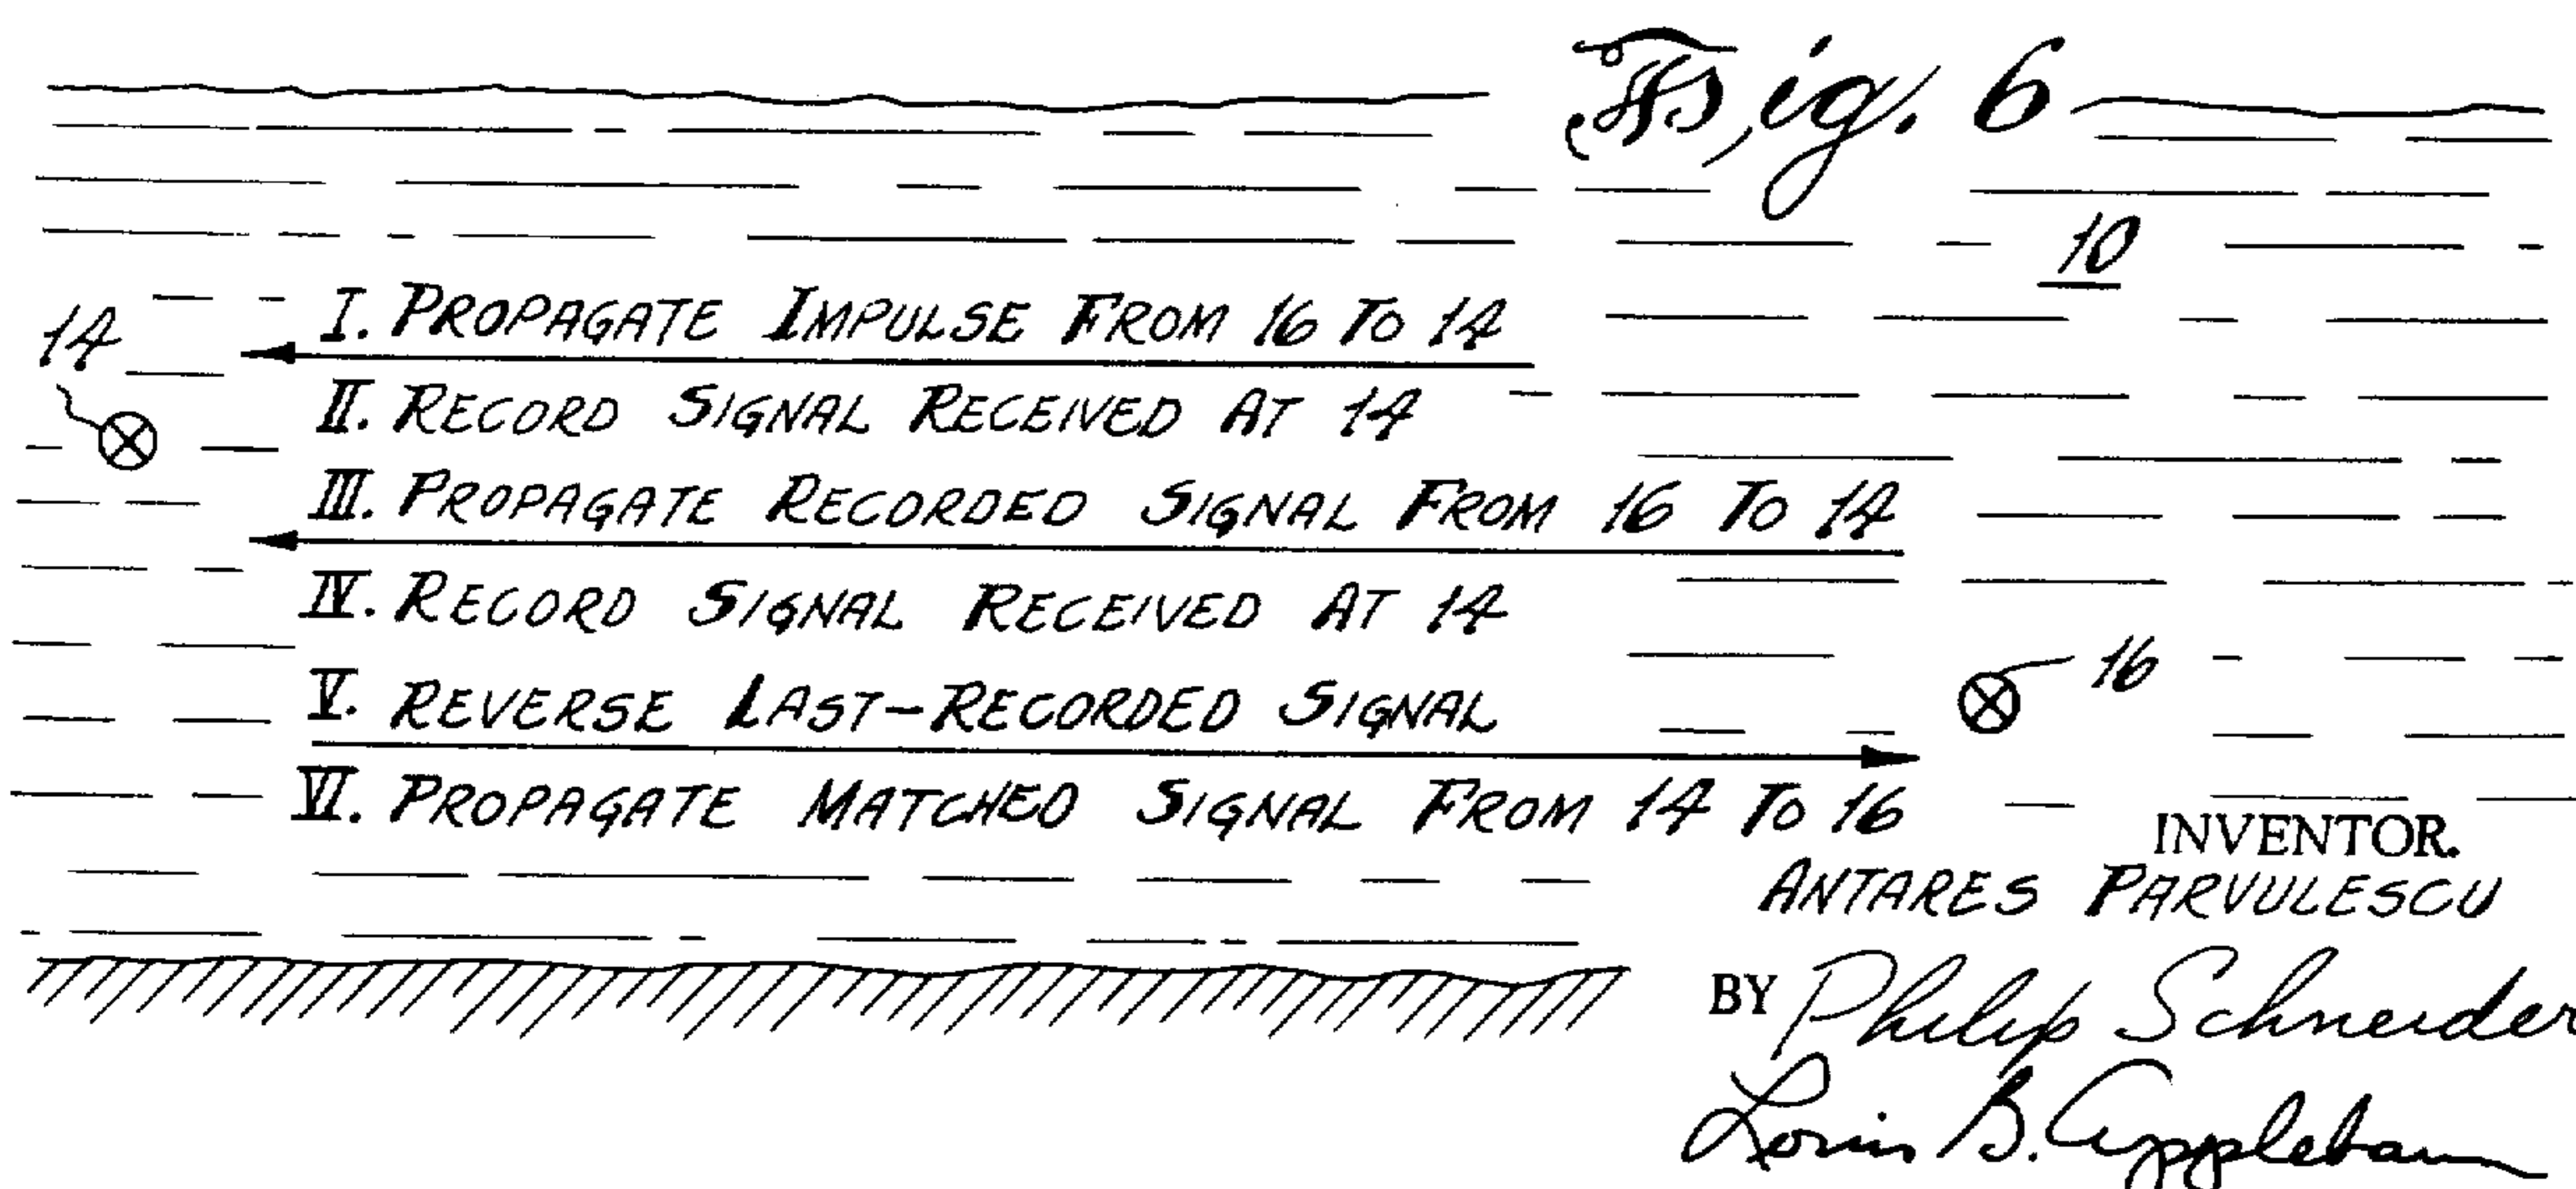 Fig. 6
10
14
I. PROPAGATE IMPULSE FROM 16 TO 14
II. RECORD SIGNAL RECEIVED AT 14
III. PROPAGATE RECORDED SIGNAL FROM 16 TO 14
IV. RECORD SIGNAL RECEIVED AT 14
V. REVERSE LAST-RECORDED SIGNAL
16
VI. PROPAGATE MATCHED SIGNAL FROM 14 TO 16
INVENTOR.
ANTARES PARVULESCU
BY Philip Schneider
Louis B. Applebaum